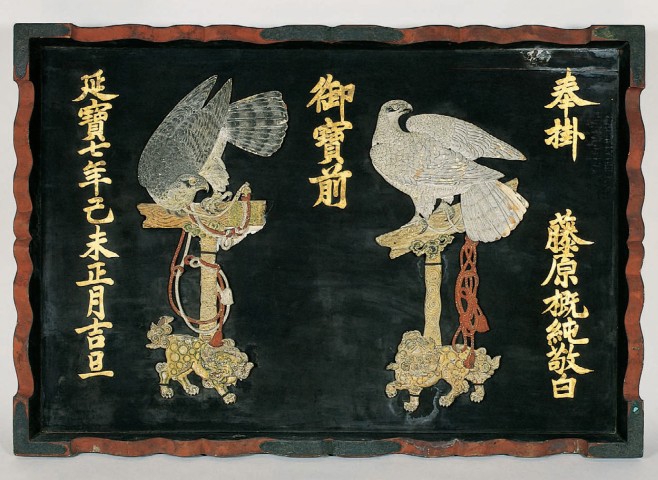 奉掛
藤原概純敬白
御寳前
延寳七年己未正月吉旦